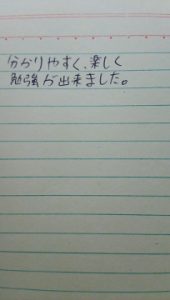 分かりやすく、楽しく
勉強が出来ました。